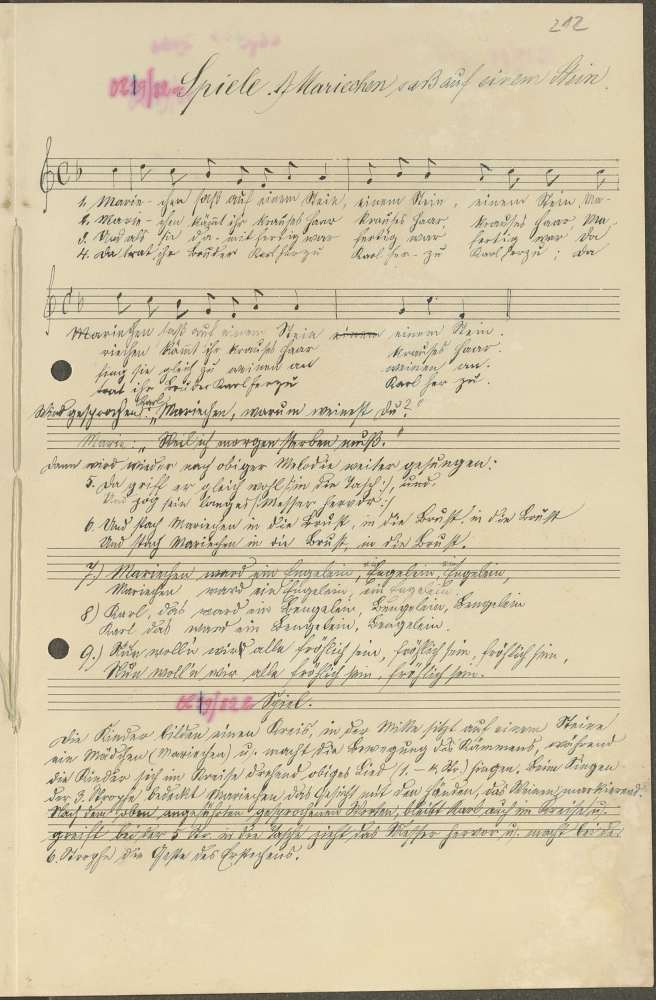 212
Spiele. 1) Mariechen saß auf einem Stein.
1. Marie-chen saß auf einem Stein, einem Stein, einem Stein, Ma-
2. Marie-chen kämt ihr krauses Haar krauses Haar, krauses Haar, Ma
3. Und als sie da-mit fertig war fertig war fertig war Da
4. Da trat ihr Bruder Karl herzu Karl her-zu Karl herzu; Da
Mariechen saß auf einem Stein einem einem Stein.
riechen kämt ihr krauses Haar krauses Haar.
fing sie gleich zu weinen an weinen an.
trat ihr Bruder Karl herzu Karl her zu.
Wird gesprochen: Karl: „Mariechen, warum weinest Du?"
Marie: „Weil ich morgen sterben muß."
Dann wird wieder nach obiger Melodie weiter gesungen:
5. Da griff er gleich wohl in die Tasch :/, und
Und zog sein langes /: Messer hervor :/
6. Und stach Mariechen in die Brust, in die Brust, in die Brust
Und stach Mariechen in die Brust, in die Brust.
7.) Mariechen ward ein Engelein, ein Engelein, ein Engelein,
Mariechen ward ein Engelein, ein Engelein.
8) Karl, das ward ein Bengelein, Bengelein, Bengelein
Karl das ward ein Bengelein, Bengelein.
9.) Nun woll'n wir alle fröhlich sein, fröhlich sein, fröhlich sein,
Nun woll'n wir alle fröhlich sein, fröhlich sein.
Spiel.
Die Kinder bilden einen Kreis, in der Mitte sitzt auf einem Steine
ein Mädchen (Mariechen) u. macht die Bewegung des Kämmens, während
die Kinder sich im Kreise drehend obiges Lied (1. – 4. Str.) singen. Beim Singen
der 3. Strophe bedeckt Mariechen das Gesicht mit den Händen, das Weinen markierend.
Nach den oben angeführten gesprochenen Worten, bleibt Karl auch im Kreise u.
greift bei der 5 Str. in die Tasche zieht das Messer hervor u. macht bei der
6. Strophe die Geste des Erstechens.